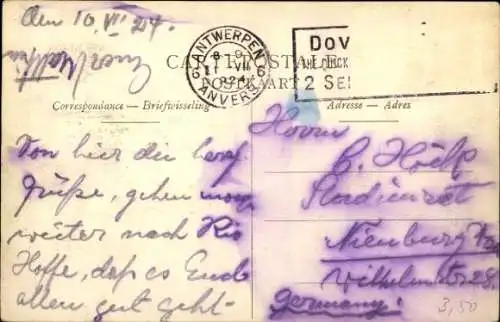 den 10. VII 24.
CARTE POSTALE
POSTKAART
ANTWERPEN
6 6
8-9
11 VII
1924
ANVERS
DOV
THE QUICK
2 SE
Correspondance — Briefwisseling
Adresse — Adres
Von hier die herzl.
Grüße, gehen morgen
weiter nach Rio
Hoffe, daß es Euch
allen gut geht-
Herrn
Studienrat
Nienburg
Wilhelmstr 28.
Germany!
3,50